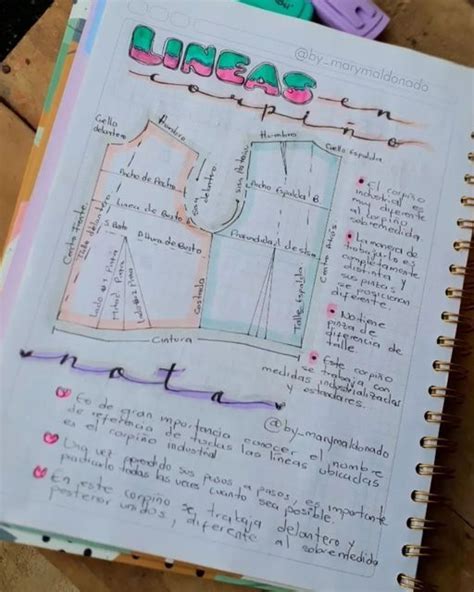 @by_marymaldonado
LINEAS en
corpiño
Cuello
delantero
Hombro
Hombro
Cuello Espalda
Ancho de Pecho
Sisa delantero
Ancho Espalda B
Linea de Busto
Centro frente
Talle delantero
S. Busto
Altura de Busto
Profundidad de sisa
Centro Atrás
Lado #1 Pinza
Mitad Pinza
Lado #2 Pinza
Costado
Talle Espalda
Cintura
El corpiño
industrial es
muy diferente
al corpiño
sobremedida.
La manera de
trabajarlo es
completamente
distinta y
sus pinzas
se posicionan
diferente
No tiene
pinza de
diferencia de
talle.
Este corpiño
se trabaja con
medidas industrializadas
y estandares.
nota
@by_marymaldonado
Es de gran importancia conocer el nombre
de referencia de todas las lineas ubicadas
es el corpiño industrial
Una vez aprendido sus pasos a pasos, es importante
practicarlo todas las veces cuanto sea posible.
En este corpiño se trabaja delantero y
posterior unidos, diferente al sobremedida